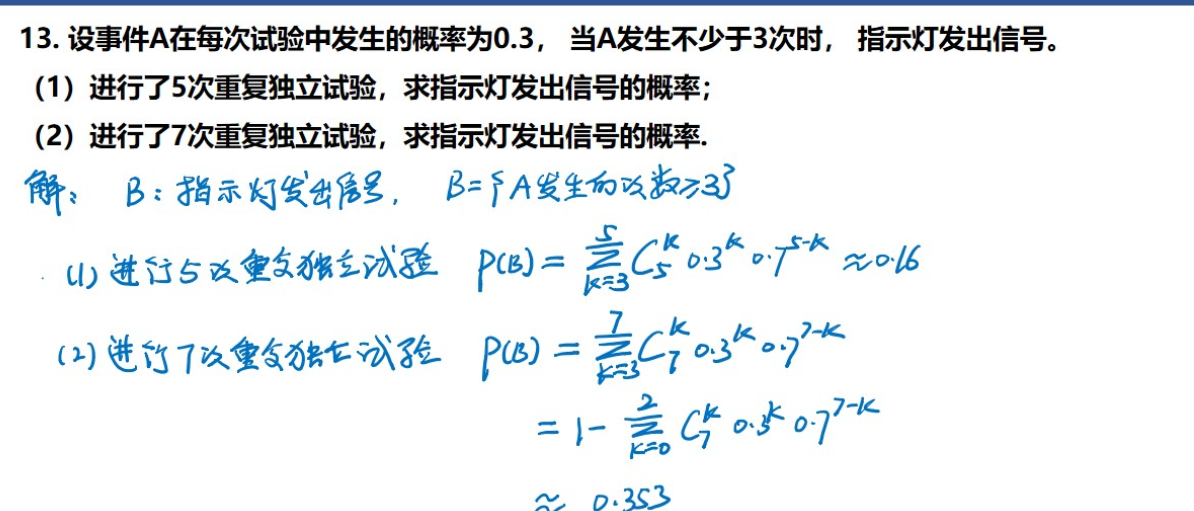 13. 设事件A在每次试验中发生的概率为0.3， 当A发生不少于3次时， 指示灯发出信号。
（1）进行了5次重复独立试验，求指示灯发出信号的概率；
（2）进行了7次重复独立试验，求指示灯发出信号的概率.
解： B：指示灯发出信号， B={A发生的次数≥3}
(1) 进行5次重复独立试验 P(B) = ∑_{k=3}^{5} C_5^k 0.3^k 0.7^{5-k} ≈0.16
(2) 进行7次重复独立试验 P(B) = ∑_{k=3}^{7} C_7^k 0.3^k 0.7^{7-k}
= 1- ∑_{k=0}^{2} C_7^k 0.3^k 0.7^{7-k}
≈ 0.353